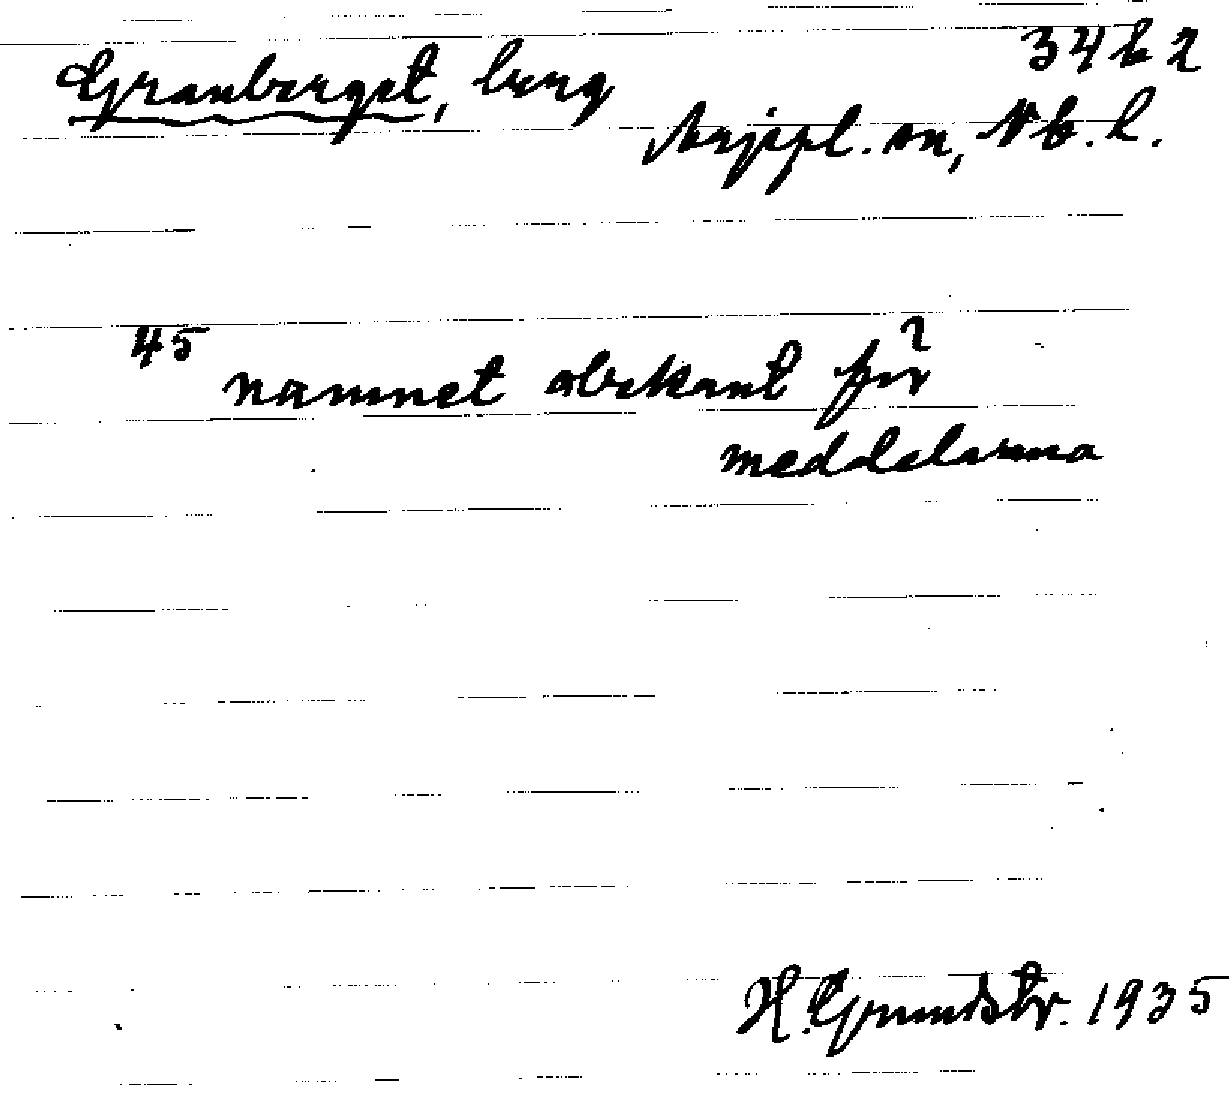 Granberget, berg
34 b 2
Arjepl. sn, Nb. l.
45
namnet obekant för
meddelarna
H. Grundstr. 1935